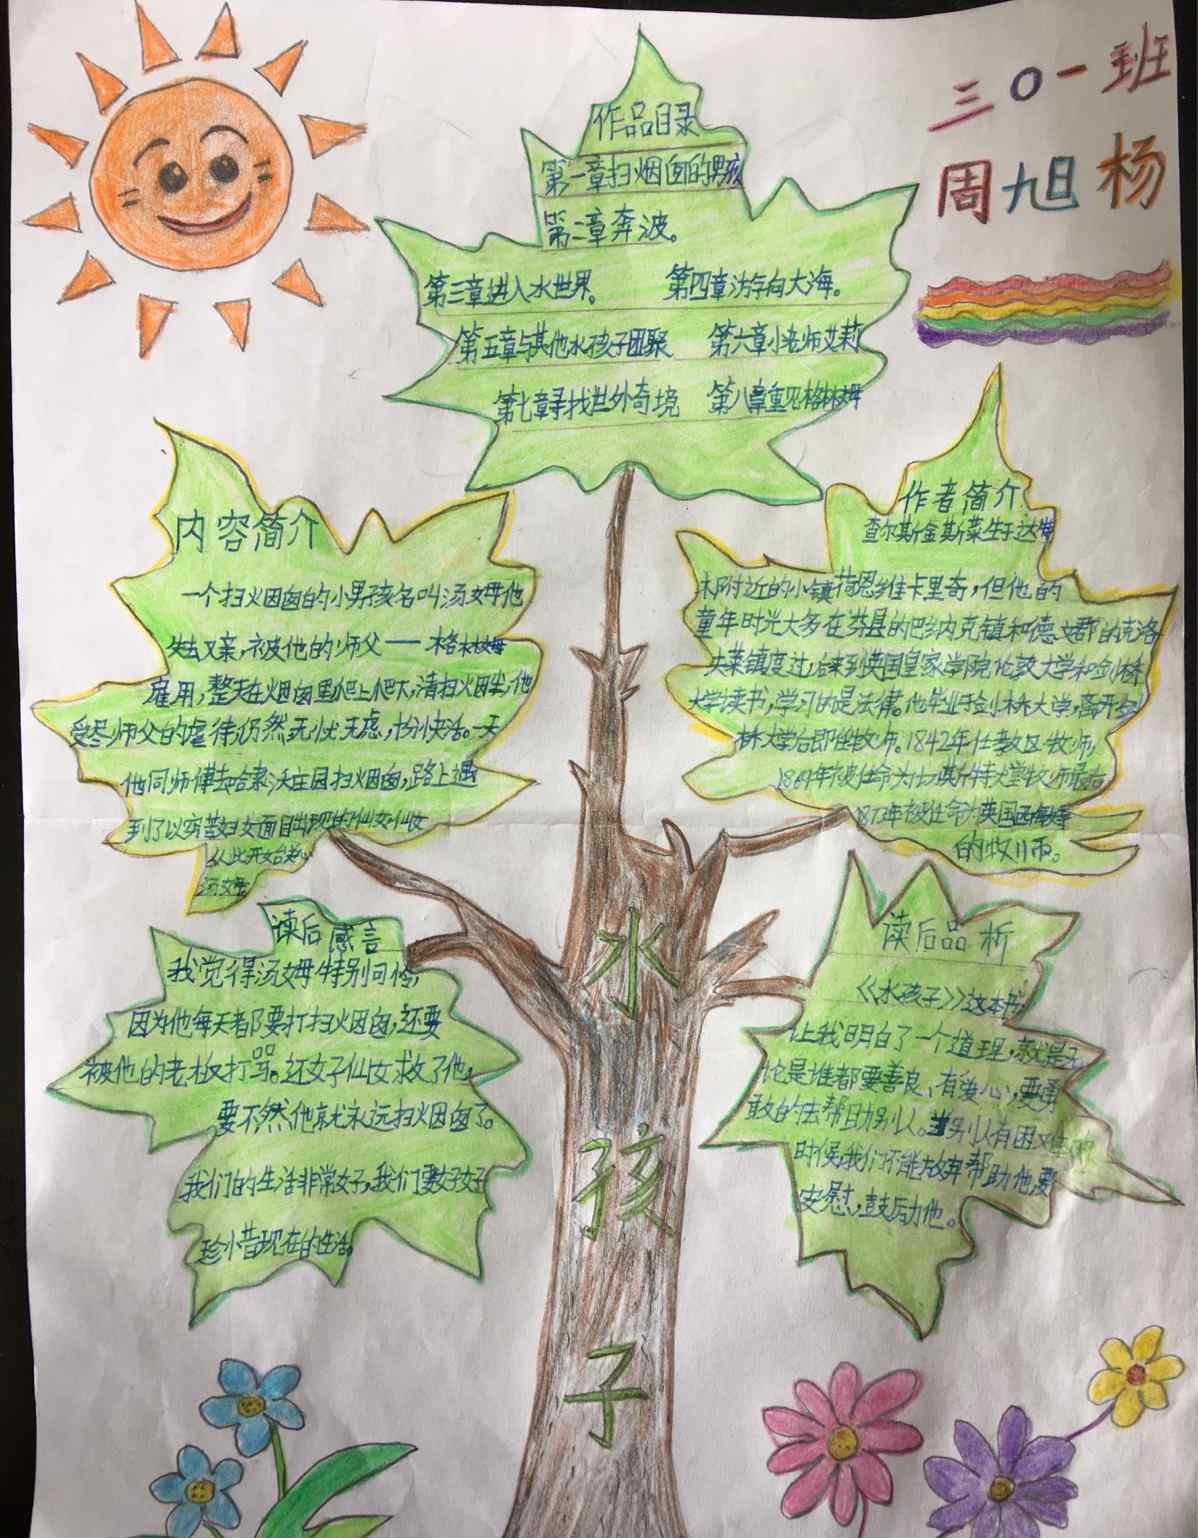 三〇一班
周旭杨
作品目录
第一章扫烟囱的男孩
第二章奔波。
第三章进入水世界。 第四章游向大海。
第五章与其他水孩子团聚 第六章小老师艾莉
第七章寻找世外奇境 第八章重见格林姆
内容简介
一个扫烟囱的小男孩名叫汤姆他
失去父亲,被他的师父——格林姆
雇用,整天在烟囱里爬上爬下,清扫烟尘,他
受尽师父的虐待仍然无忧无虑,十分快活。一天
他同师傅去哈索沃庄园扫烟囱,路上遇
到了以穷苦妇女面目出现的仙女仙女
从此开始
汤姆
作者简介
查尔斯金斯莱生于达特
木附近的小镇荷恩维卡里奇,但他的
童年时光大多在芬县的巴纳克镇和德文郡的克洛
夫莱镇度过,后来到英国皇家学院伦敦大学和剑桥
大学读书,学习的是法律。他毕业于剑林大学,离开剑
林大学后即任牧师。1842年任教区牧师,
年被任命为切斯特大堂牧师最后
1873年被任命为英国西敏寺
的牧师。
读后感言
我觉得汤姆特别可怜,
因为他每天都要打扫烟囱,还要
被他的老板打骂。还好仙女救了他,
要不然他就永远扫烟囱了。
我们的生活非常好,我们要好好
珍惜现在的生活。
读后品析
《水孩子》这本书
让我明白了一个道理,就是无
论是谁都要善良、有爱心,要勇
敢的去帮助别人。当别人有困难的
时候,我们不能放弃帮助他,要
安慰,鼓励他。
水
孩
子